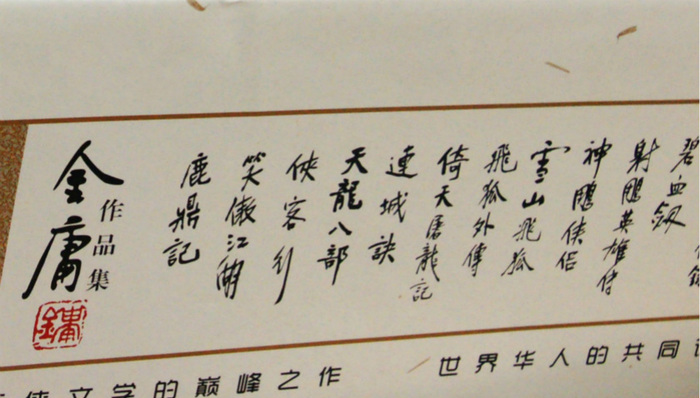 碧血劍
射鵰英雄傳
神鵰俠侶
雪山飛狐
飛狐外傳
倚天屠龍記
連城訣
天龍八部
俠客行
笑傲江湖
鹿鼎記
金庸
作品集
鏞
侠文学的巅峰之作
世界华人的共同